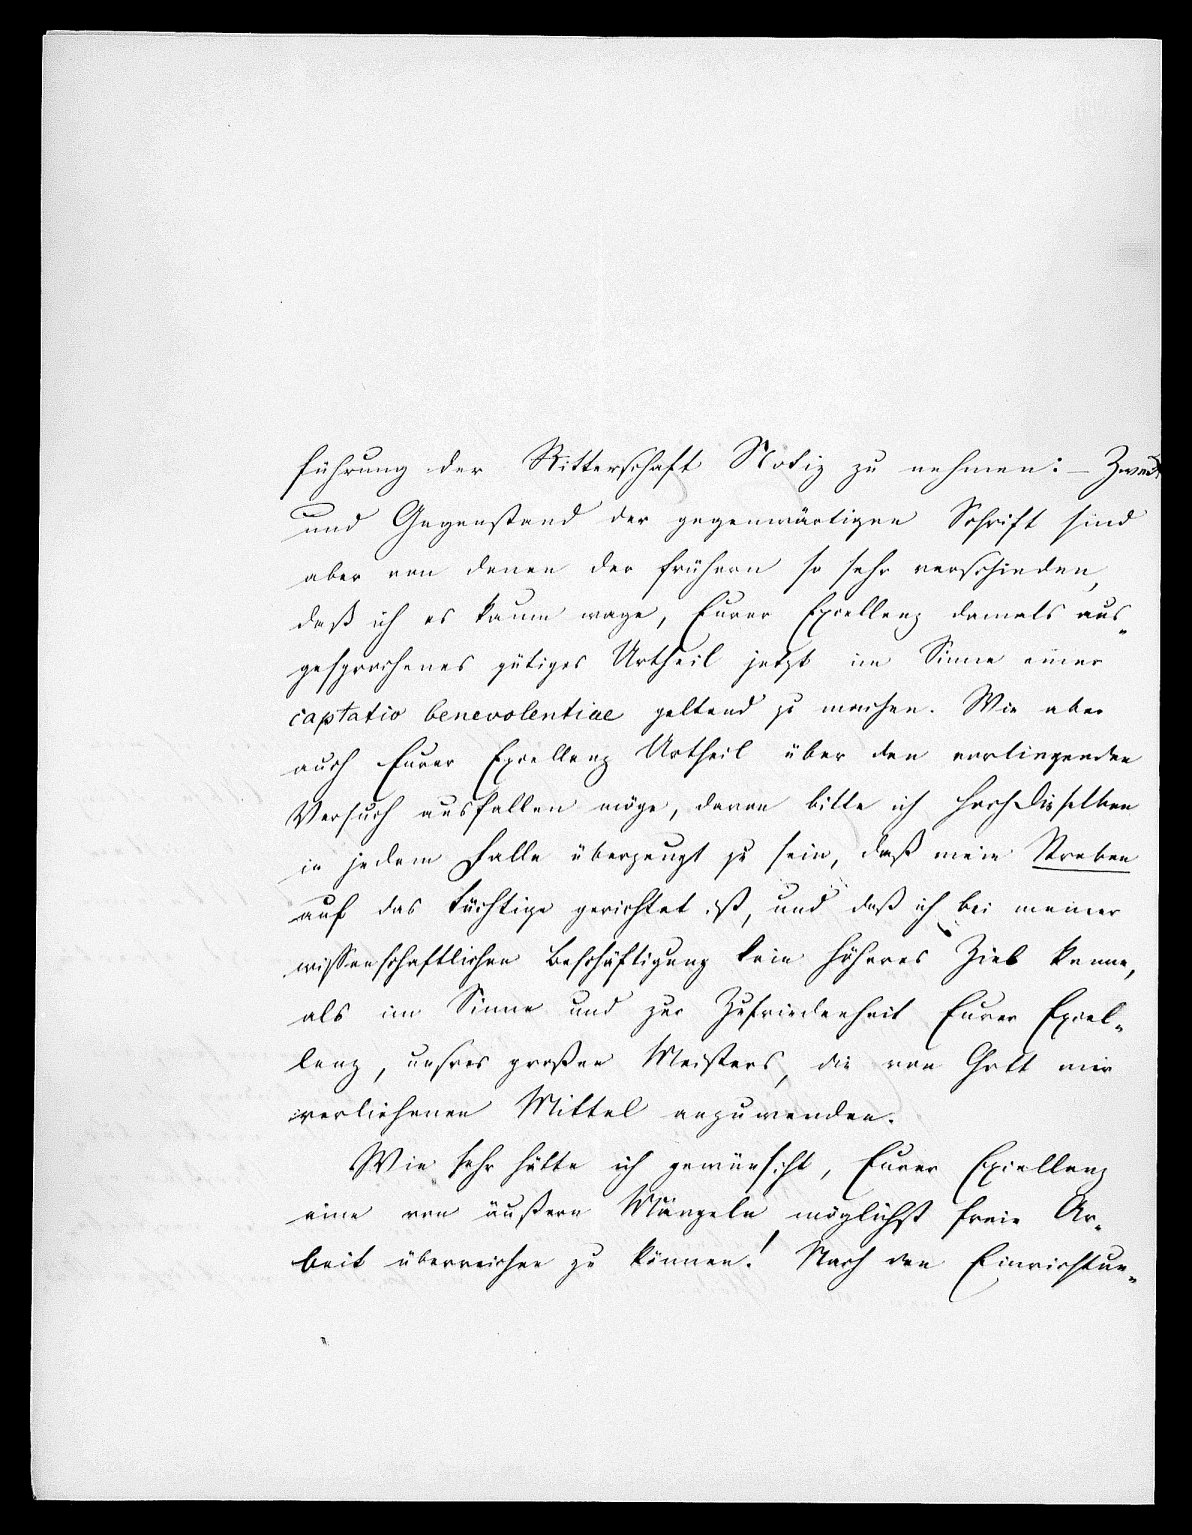 führung der Ritterschaft Notiz zu nehmen: – Zweck
und Gegenstand der gegenwärtigen Schrift sind
aber von denen der frühern so sehr verschieden,
daß ich es kaum wage, Eurer Excellenz damals aus-
gesprochenes gütiges Urtheil jetzt im Sinne einer
captatio benevolentiae geltend zu machen. Wie aber
auch Eurer Excellenz Urtheil über den vorliegenden
Versuch ausfallen möge, davon bitte ich Hochdieselben
in jedem Falle überzeugt zu sein, daß mein Streben
auf das Tüchtige gerichtet ist, und daß ich bei meiner
wissenschaftlichen Beschäftigung kein höheres Ziel kenne,
als im Sinne und zur Zufriedenheit Eurer Excel-
lenz, unsres großen Meisters, die von Gott mir
verliehenen Mittel anzuwenden.
Wie sehr hätte ich gewünscht, Eurer Excellenz
eine von äußern Mängeln möglichst freie Ar-
beit überreichen zu können! Nach den Einrichtun-